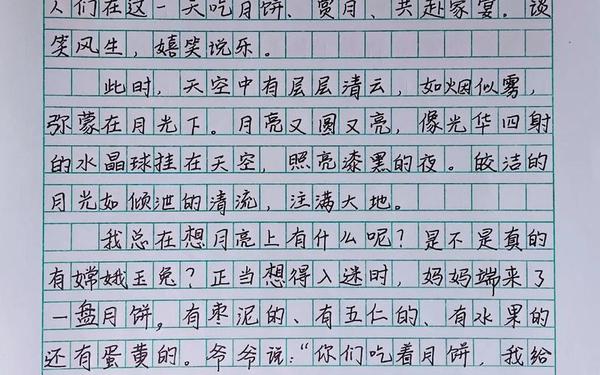 人们在这一天吃月饼、赏月、共赴家宴。谈
笑风生，嬉笑说乐。
此时，天空中有层层清云，如烟似雾，
弥蒙在月光下。月亮又圆又亮，像光华四射
的水晶球挂在天空，照亮漆黑的夜。皎洁的
月光如倾泄的清流，注满大地。
我总在想月亮上有什么呢？是不是真的
有嫦娥玉兔？正当想得入迷时，妈妈端来了
一盘月饼，有枣泥的、有五仁的、有水果的
还有蛋黄的。爷爷说：“你们吃着月饼，我给